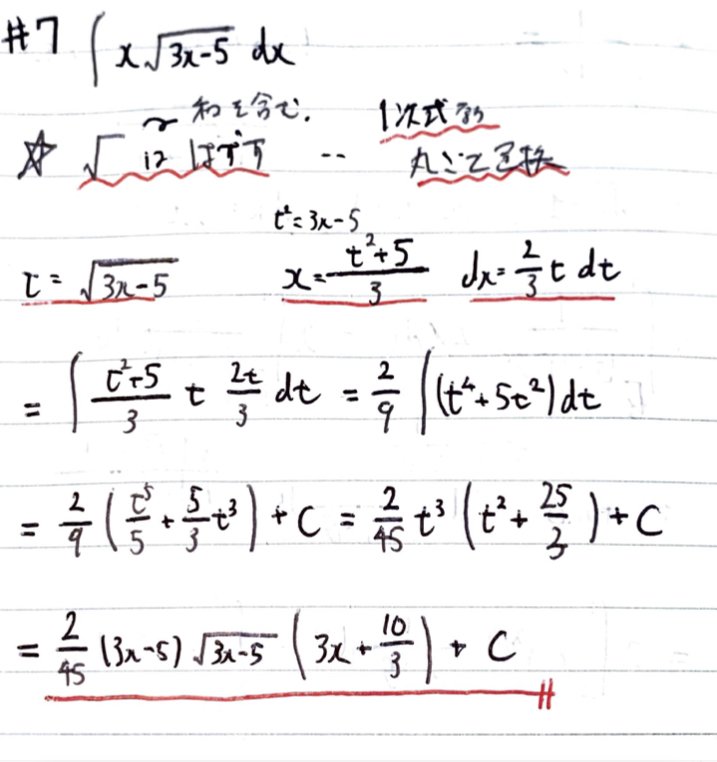 #7 ∫ x√(3x-5) dx
〜 和を含む. 1次式の
☆ √ は はずす ‥ 丸ごと置換
t² = 3x-5
t = √(3x-5) x = (t²+5)/3 dx = 2/3 t dt
= ∫ (t²+5)/3 t 2t/3 dt = 2/9 ∫ (t⁴+5t²) dt
= 2/9 (t⁵/5 + 5/3 t³) + C = 2/45 t³ (t² + 25/3) + C
= 2/45 (3x-5) √(3x-5) (3x + 10/3) + C